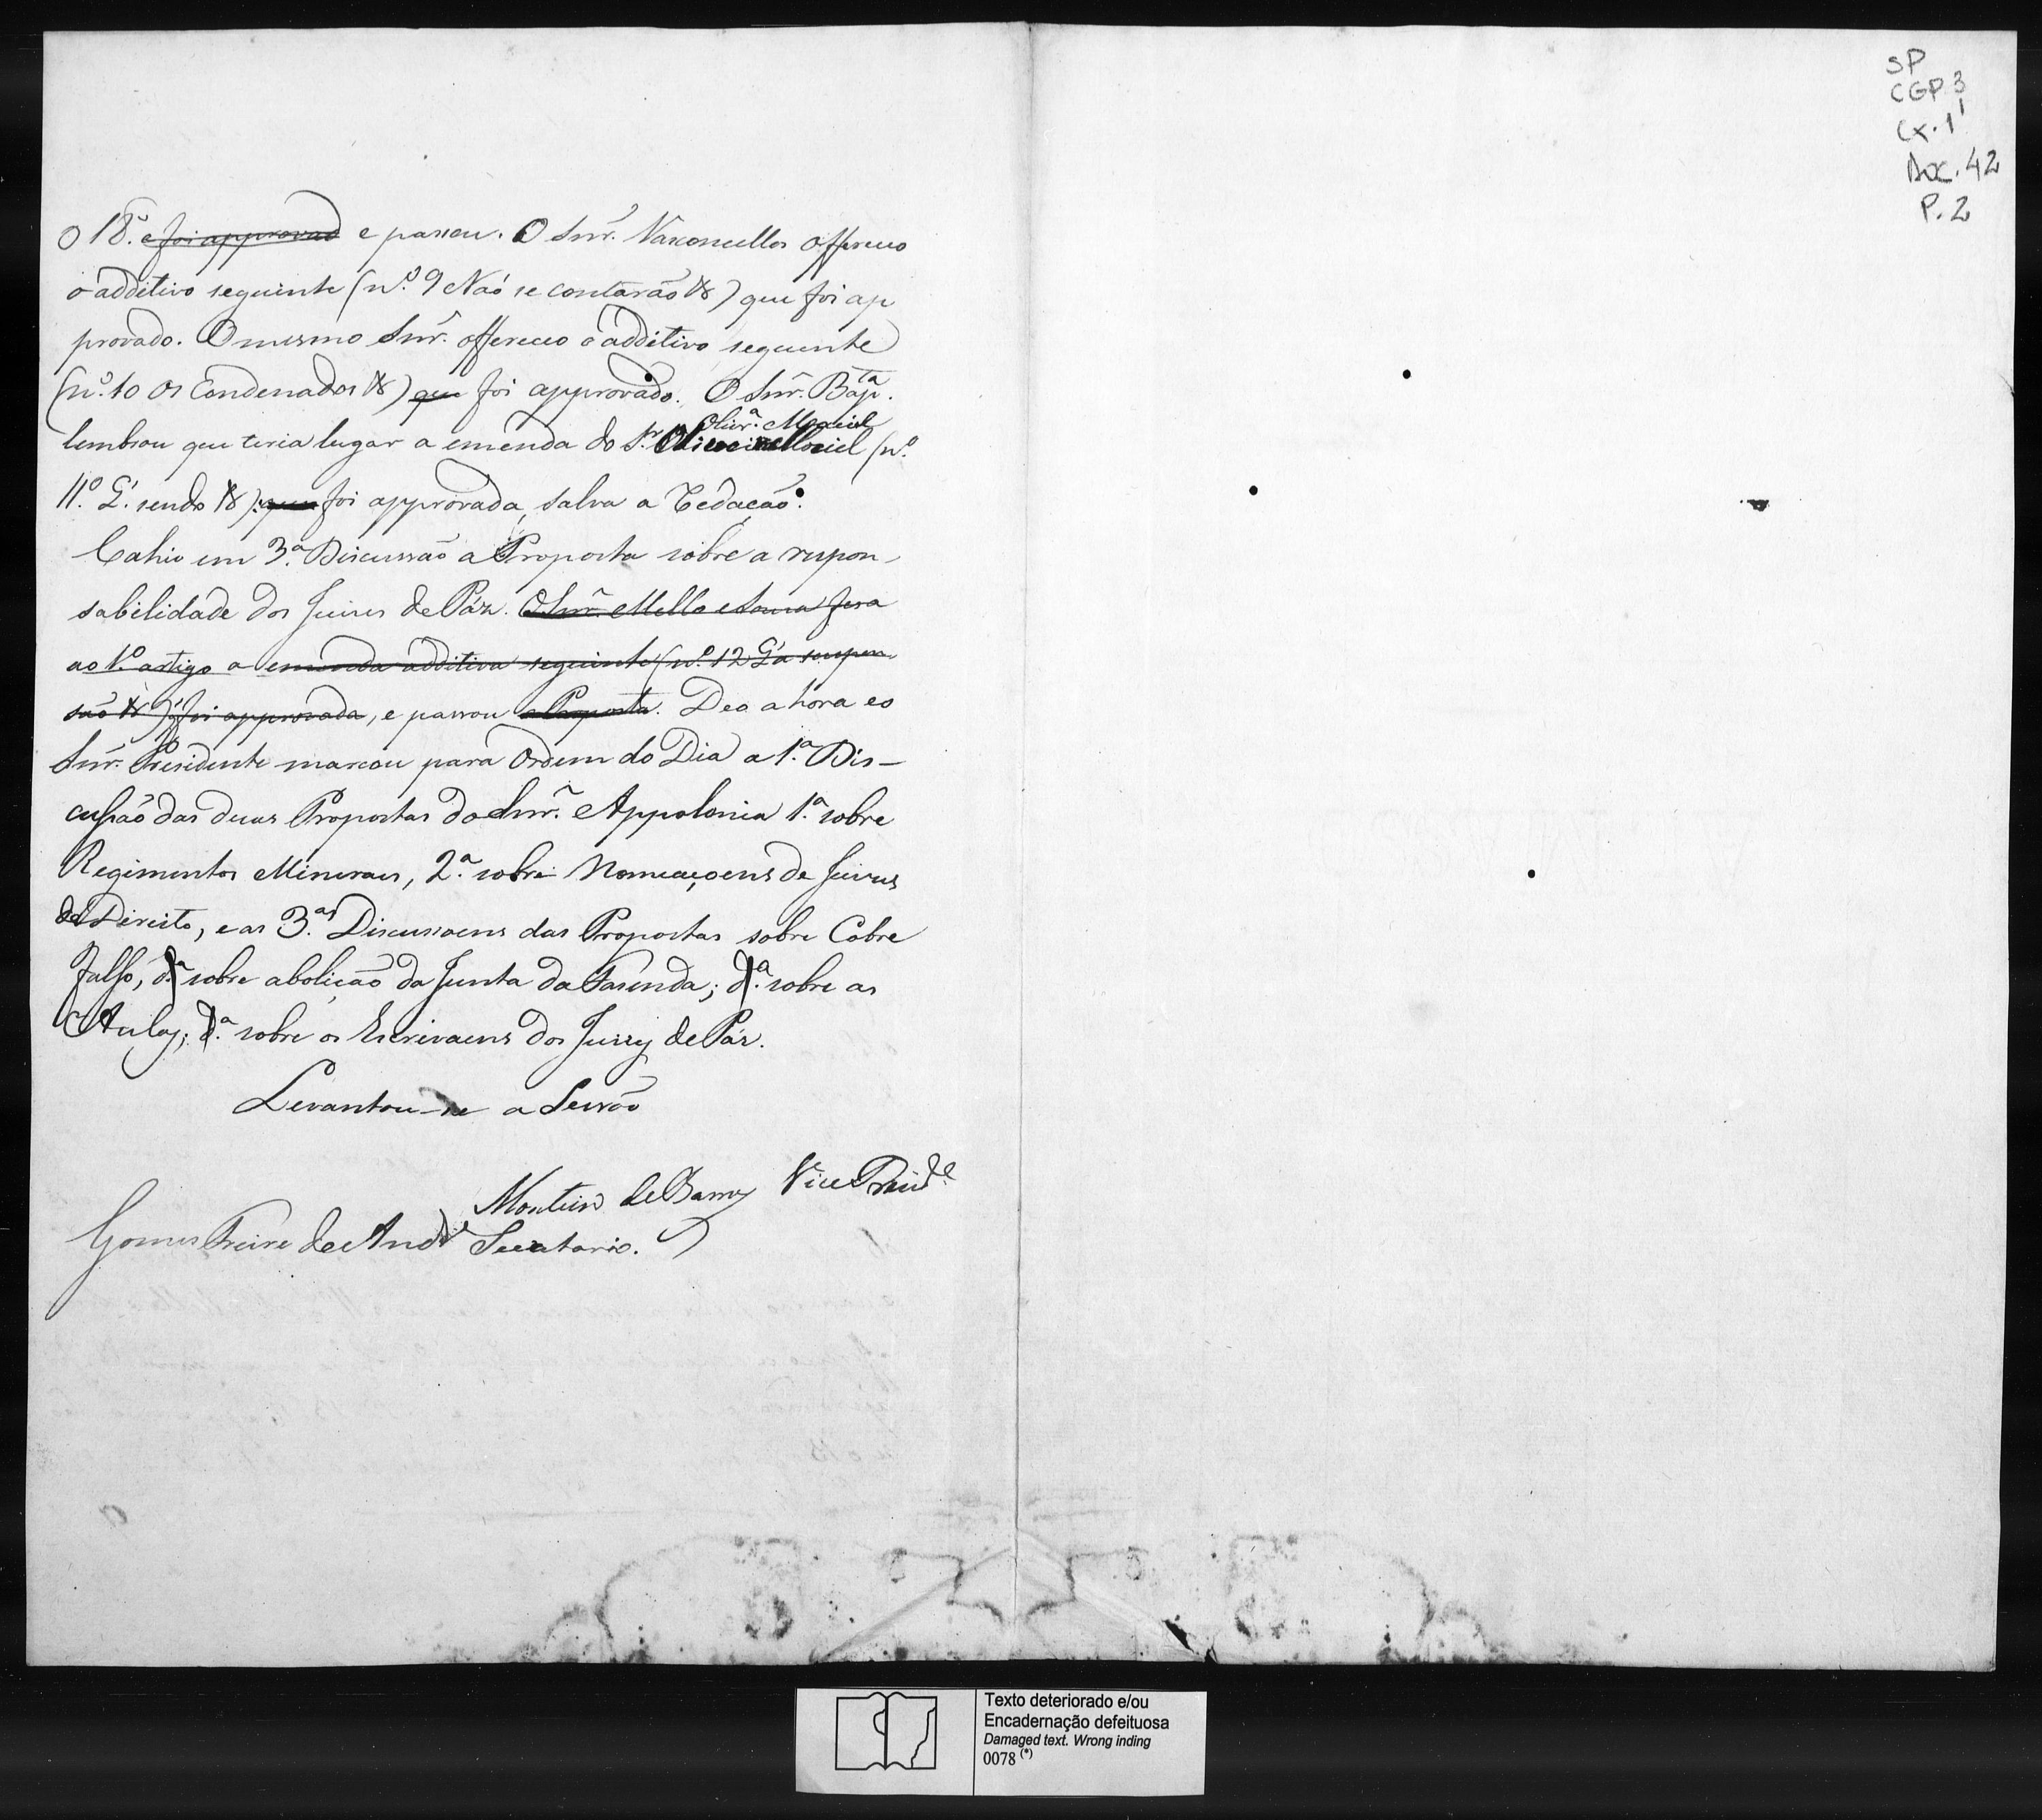 SP
CGP 3
Cx. 1
Doc. 42
P. 2
O 18.º e foi approvado e passou. O Snr. Vasconcellos offereceo
o additivo seguinte (n.º 9 Naõ se contaraõ &) que foi ap
provado. O mesmo Snr. offereceo o additivo seguinte
(n.º 10 Os Condenados &) que foi approvado. O Snr. Bap.ta
Olivr.ª Maciel
lembrou que teria lugar a emenda do Sr. Oliveira Maciel (n.º
11.º G. sendo &) que foi approvada, salva a Redacaõ.
Cahio em 3.ª Discussaõ a Proposta sobre a respon-
sabilidade dos Juises de Páz. O Snr. Mello e Sousa fera
ao 1.º artigo a emenda additiva seguinte (n.º 12 G. a suspen
saõ &) q foi approvada, e passou a Proposta. Deo a hora e o
Snr. Presidente marcou para Ordem do Dia a 1.ª Dis-
cussaõ das duas Propostas do Snr. Appolonia 1.ª sobre
Regimentos Mineraes, 2.ª sobre Nomeaçoens de Juises
de Direito, e as 3.as Discussoens das Propostas sobre Cobre
falso, d.ª sobre aboliçaõ da Junta da Fasenda; d.ª sobre as
Aulas; d.ª sobre os Escrivaens dos Juizes de Páz.
Levantou-se a Sessaõ
Monteiro de Barros Vice Presid.e
Gomes Freire de And.e Secretario.
Texto deteriorado e/ou
Encadernação defeituosa
Damaged text. Wrong inding
0078 (*)